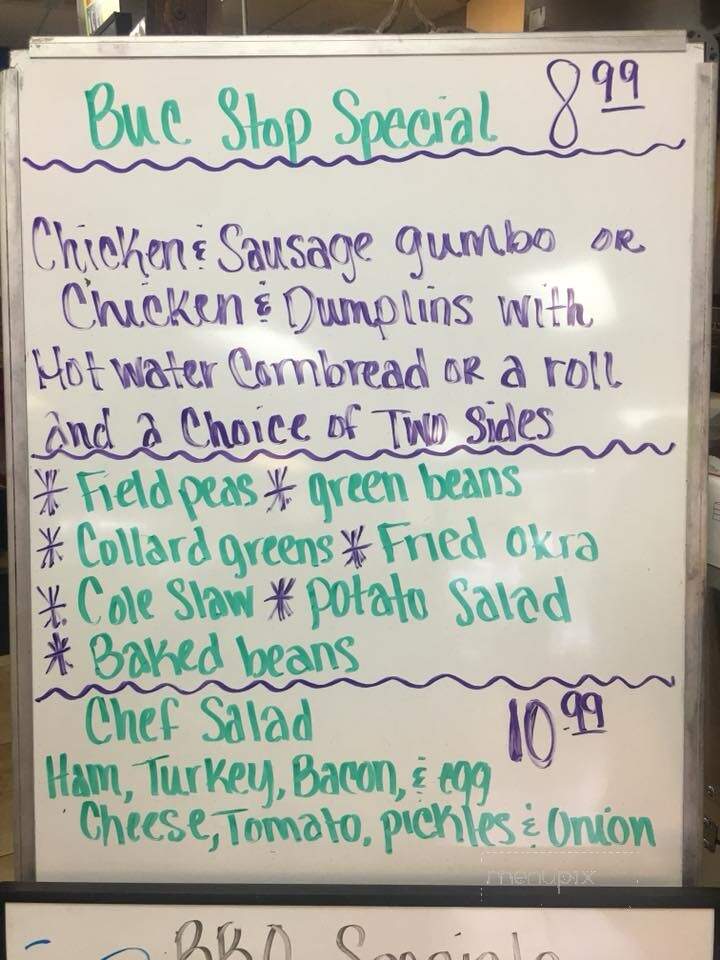 Buc Stop Special 8 99
Chicken & Sausage gumbo OR
Chicken & Dumplins with
Hot water Cornbread OR a roll
and a Choice of Two Sides
* Field peas * green beans
* Collard greens * Fried okra
* Cole Slaw * potato Salad
* Baked beans
Chef Salad 10 99
Ham, Turkey, Bacon, & egg
Cheese, Tomato, pickles & Onion
menupix
BBQ Specials